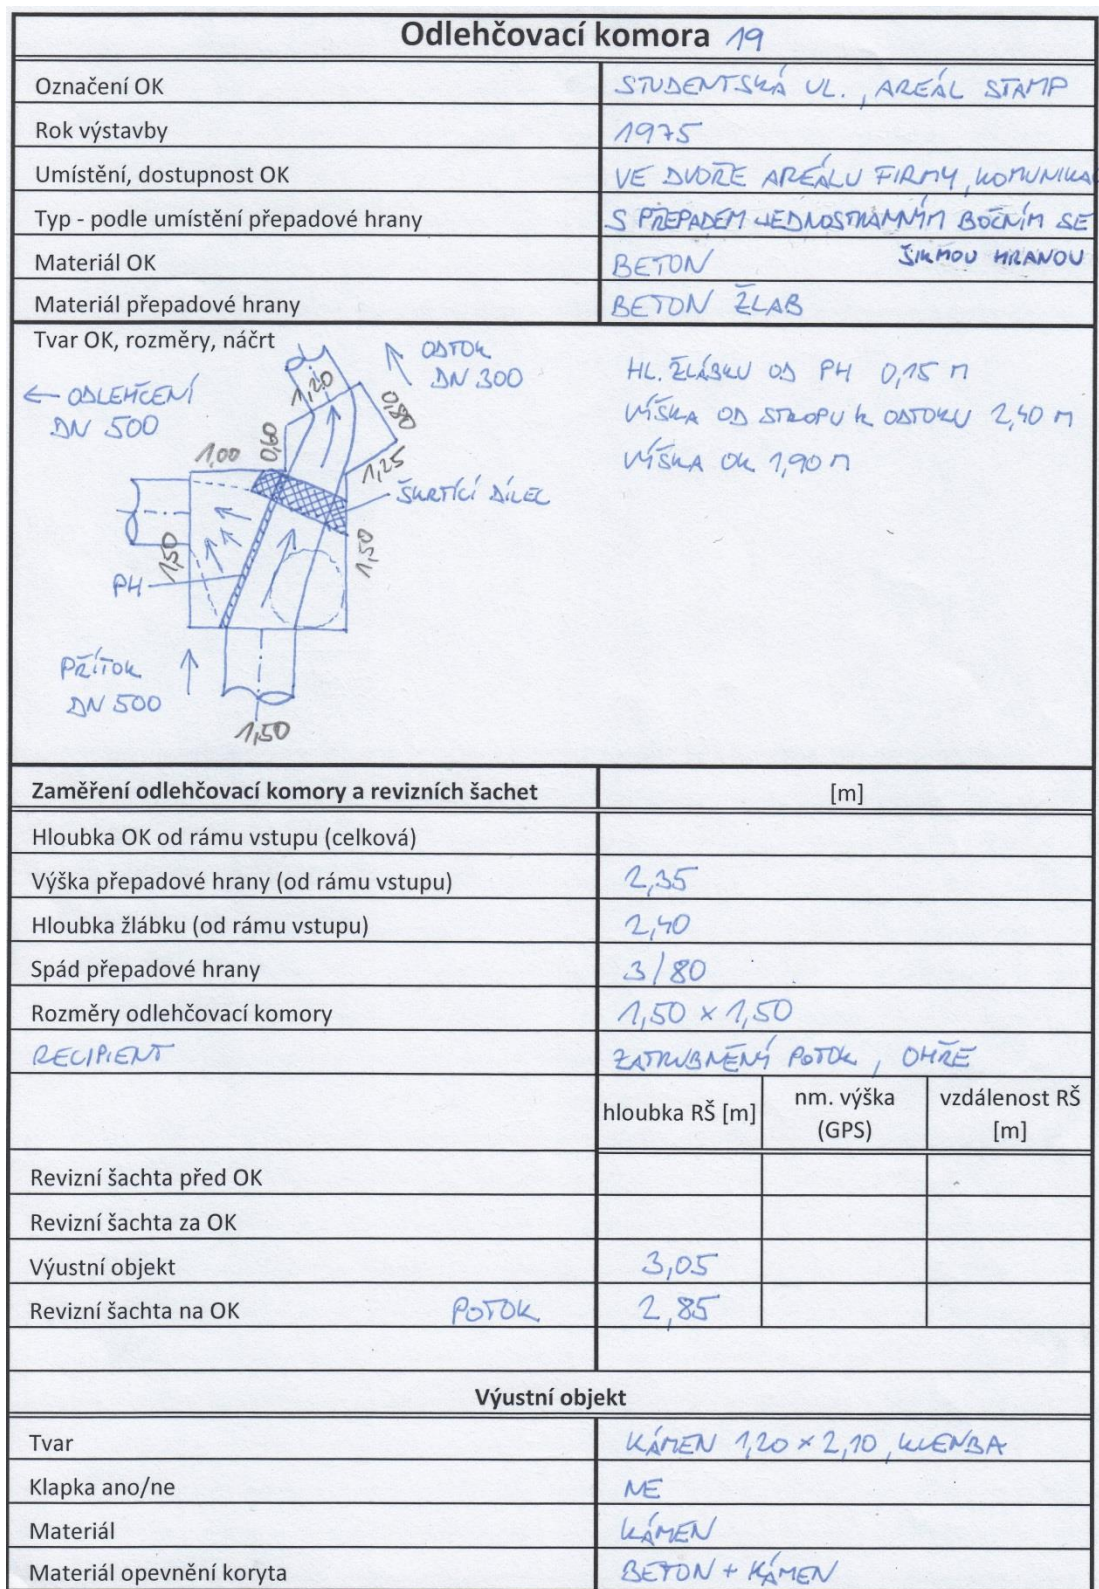 Odlehčovací komora 19
Označení OK STUDENTSKÁ UL., AREÁL STAMP
Rok výstavby 1975
Umístění, dostupnost OK VE DVOŘE AREÁLU FIRMY, KOMUNIKA
Typ - podle umístění přepadové hrany S PŘEPADEM JEDNOSTRANNÝM BOČNÍM SE
ŠIKMOU HRANOU
Materiál OK BETON
Materiál přepadové hrany BETON ŽLAB
Tvar OK, rozměry, náčrt
← ODLEHČENÍ
DN 500
ODTOK
DN 300
1,20
0,80
0,60
1,00
1,25
ŠKRTÍCÍ DÍLEC
1,50
1,50
PH
PŘÍTOK
DN 500
1,50
HL. ŽLÁBKU OD PH 0,15 M
VÝŠKA OD STROPU K ODTOKU 2,40 M
VÝŠKA OK 1,90 M
Zaměření odlehčovací komory a revizních šachet [m]
Hloubka OK od rámu vstupu (celková)
Výška přepadové hrany (od rámu vstupu) 2,35
Hloubka žlábku (od rámu vstupu) 2,40
Spád přepadové hrany 3/80
Rozměry odlehčovací komory 1,50 × 1,50
RECIPIENT ZATRUBNĚNÝ POTOK, OHŘE
hloubka RŠ [m] nm. výška (GPS) vzdálenost RŠ [m]
Revizní šachta před OK
Revizní šachta za OK
Výustní objekt 3,05
Revizní šachta na OK POTOK 2,85
Výustní objekt
Tvar KÁMEN 1,20 × 2,10, KLENBA
Klapka ano/ne NE
Materiál KÁMEN
Materiál opevnění koryta BETON + KÁMEN